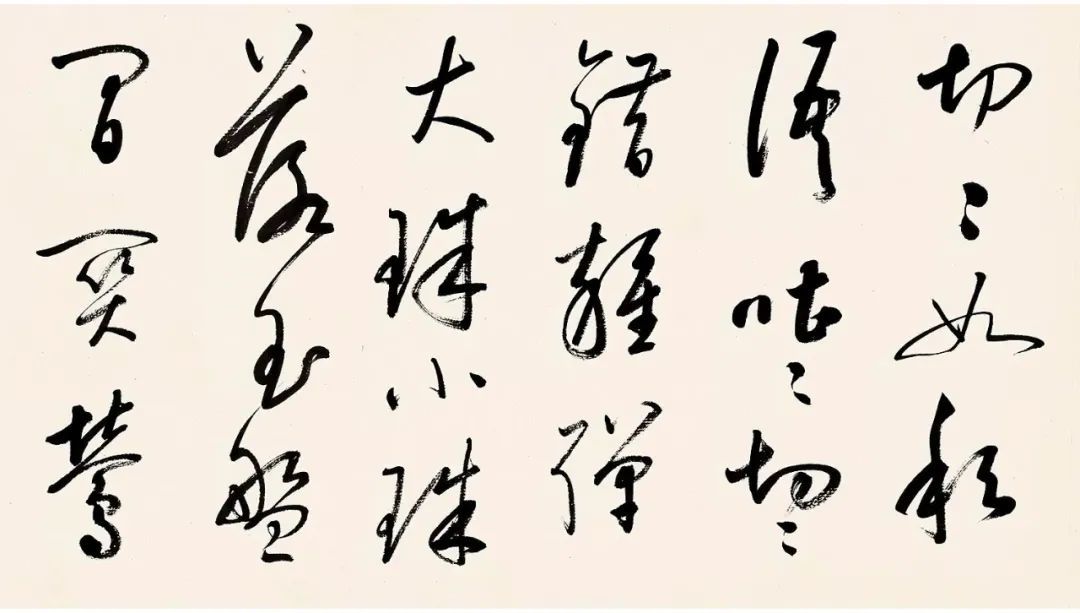 切〻如私
語嘈〻切〻
錯雜彈
大珠小珠
落玉盤
間關鶯